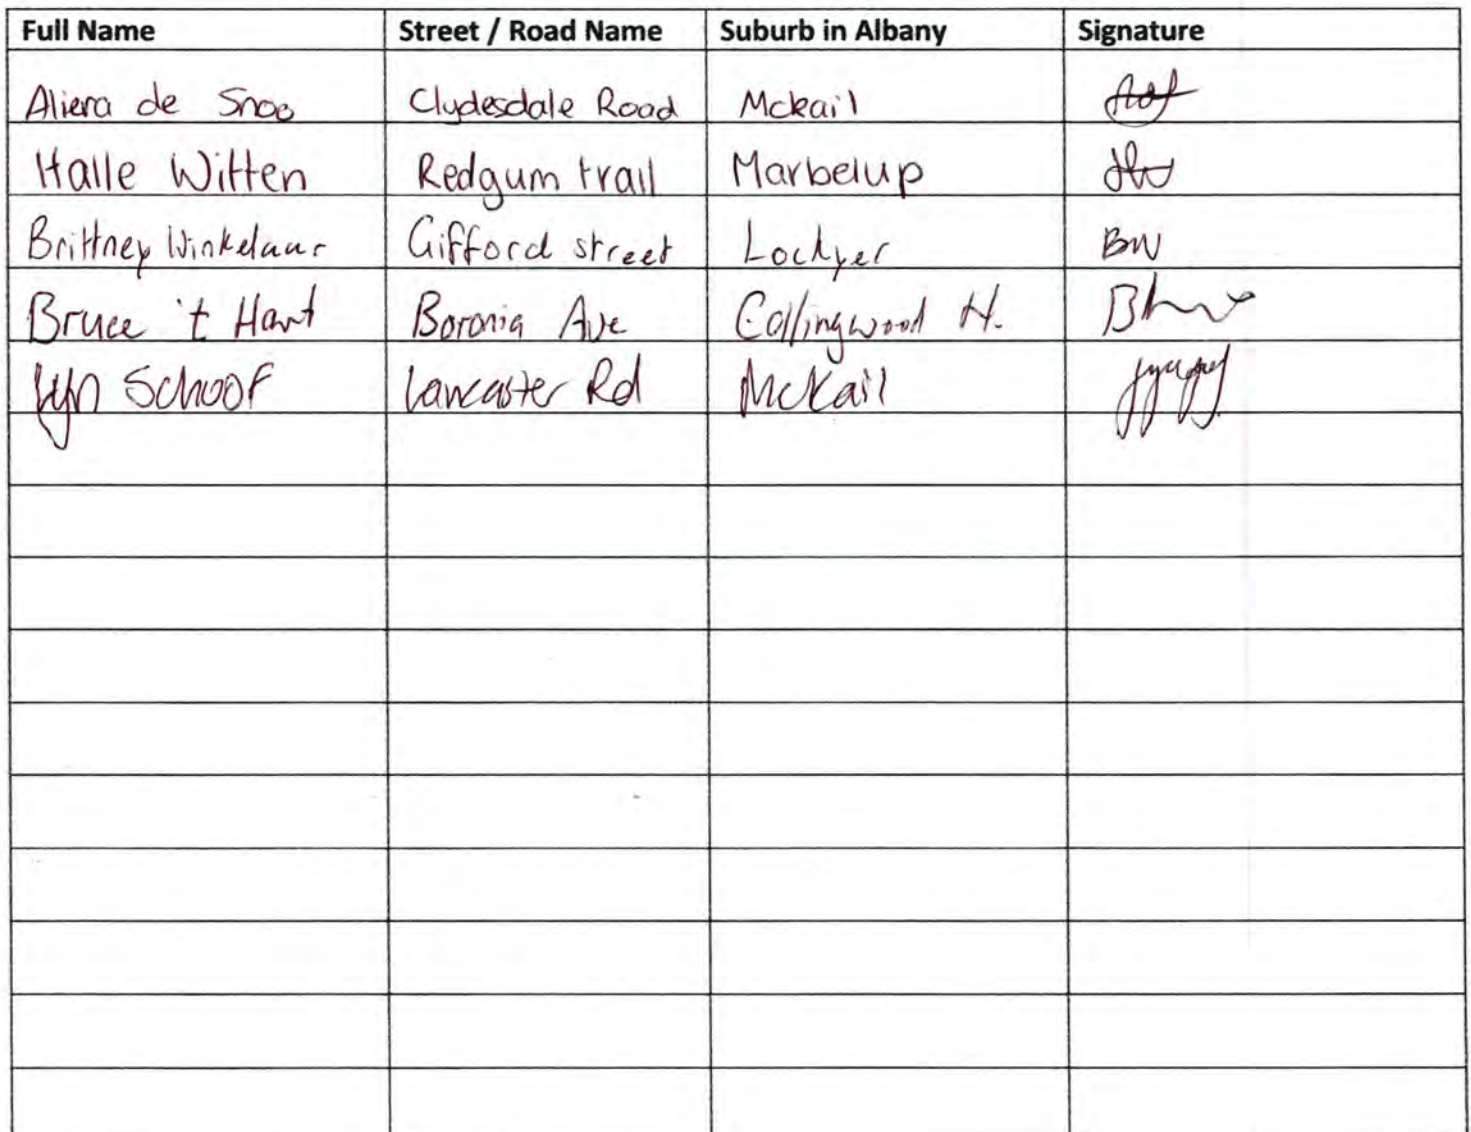 Full Name Street / Road Name Suburb in Albany Signature
Aliera de Snoo Clydesdale Road Mckail
Halle Witten Redgum trail Marbelup
Brittney Winkelaar Gifford street Lockyer BW
Bruce 't Hart Boronia Ave Collingwood H.
Lyn Schoof Lancaster Rd McKail